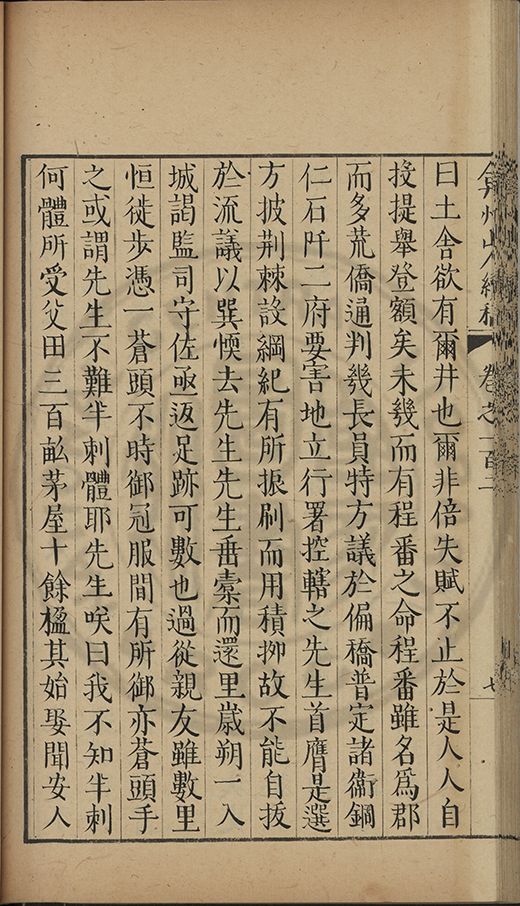 弇州山人續稿 卷之一百二 七
曰土舍欲有爾井也爾非倍失賦不止於是人人自
投提舉登額矣未幾而有程番之命程番雖名爲郡
而多荒僑通判幾長員特方議於偏橋普定諸衞銅
仁石阡二府要害地立行署控轄之先生首膺是選
方披荆棘設綱紀有所振刷而用積抑故不能自拔
於流議以巽愞去先生先生垂橐而還里歲朔一入
城謁監司守佐亟返足跡可數也過從親友雖數里
恒徒步憑一蒼頭不時御冠服間有所御亦蒼頭手
之或謂先生不難半刺體耶先生咲曰我不知半刺
何體所受父田三百畝茅屋十餘楹其始娶聞安人